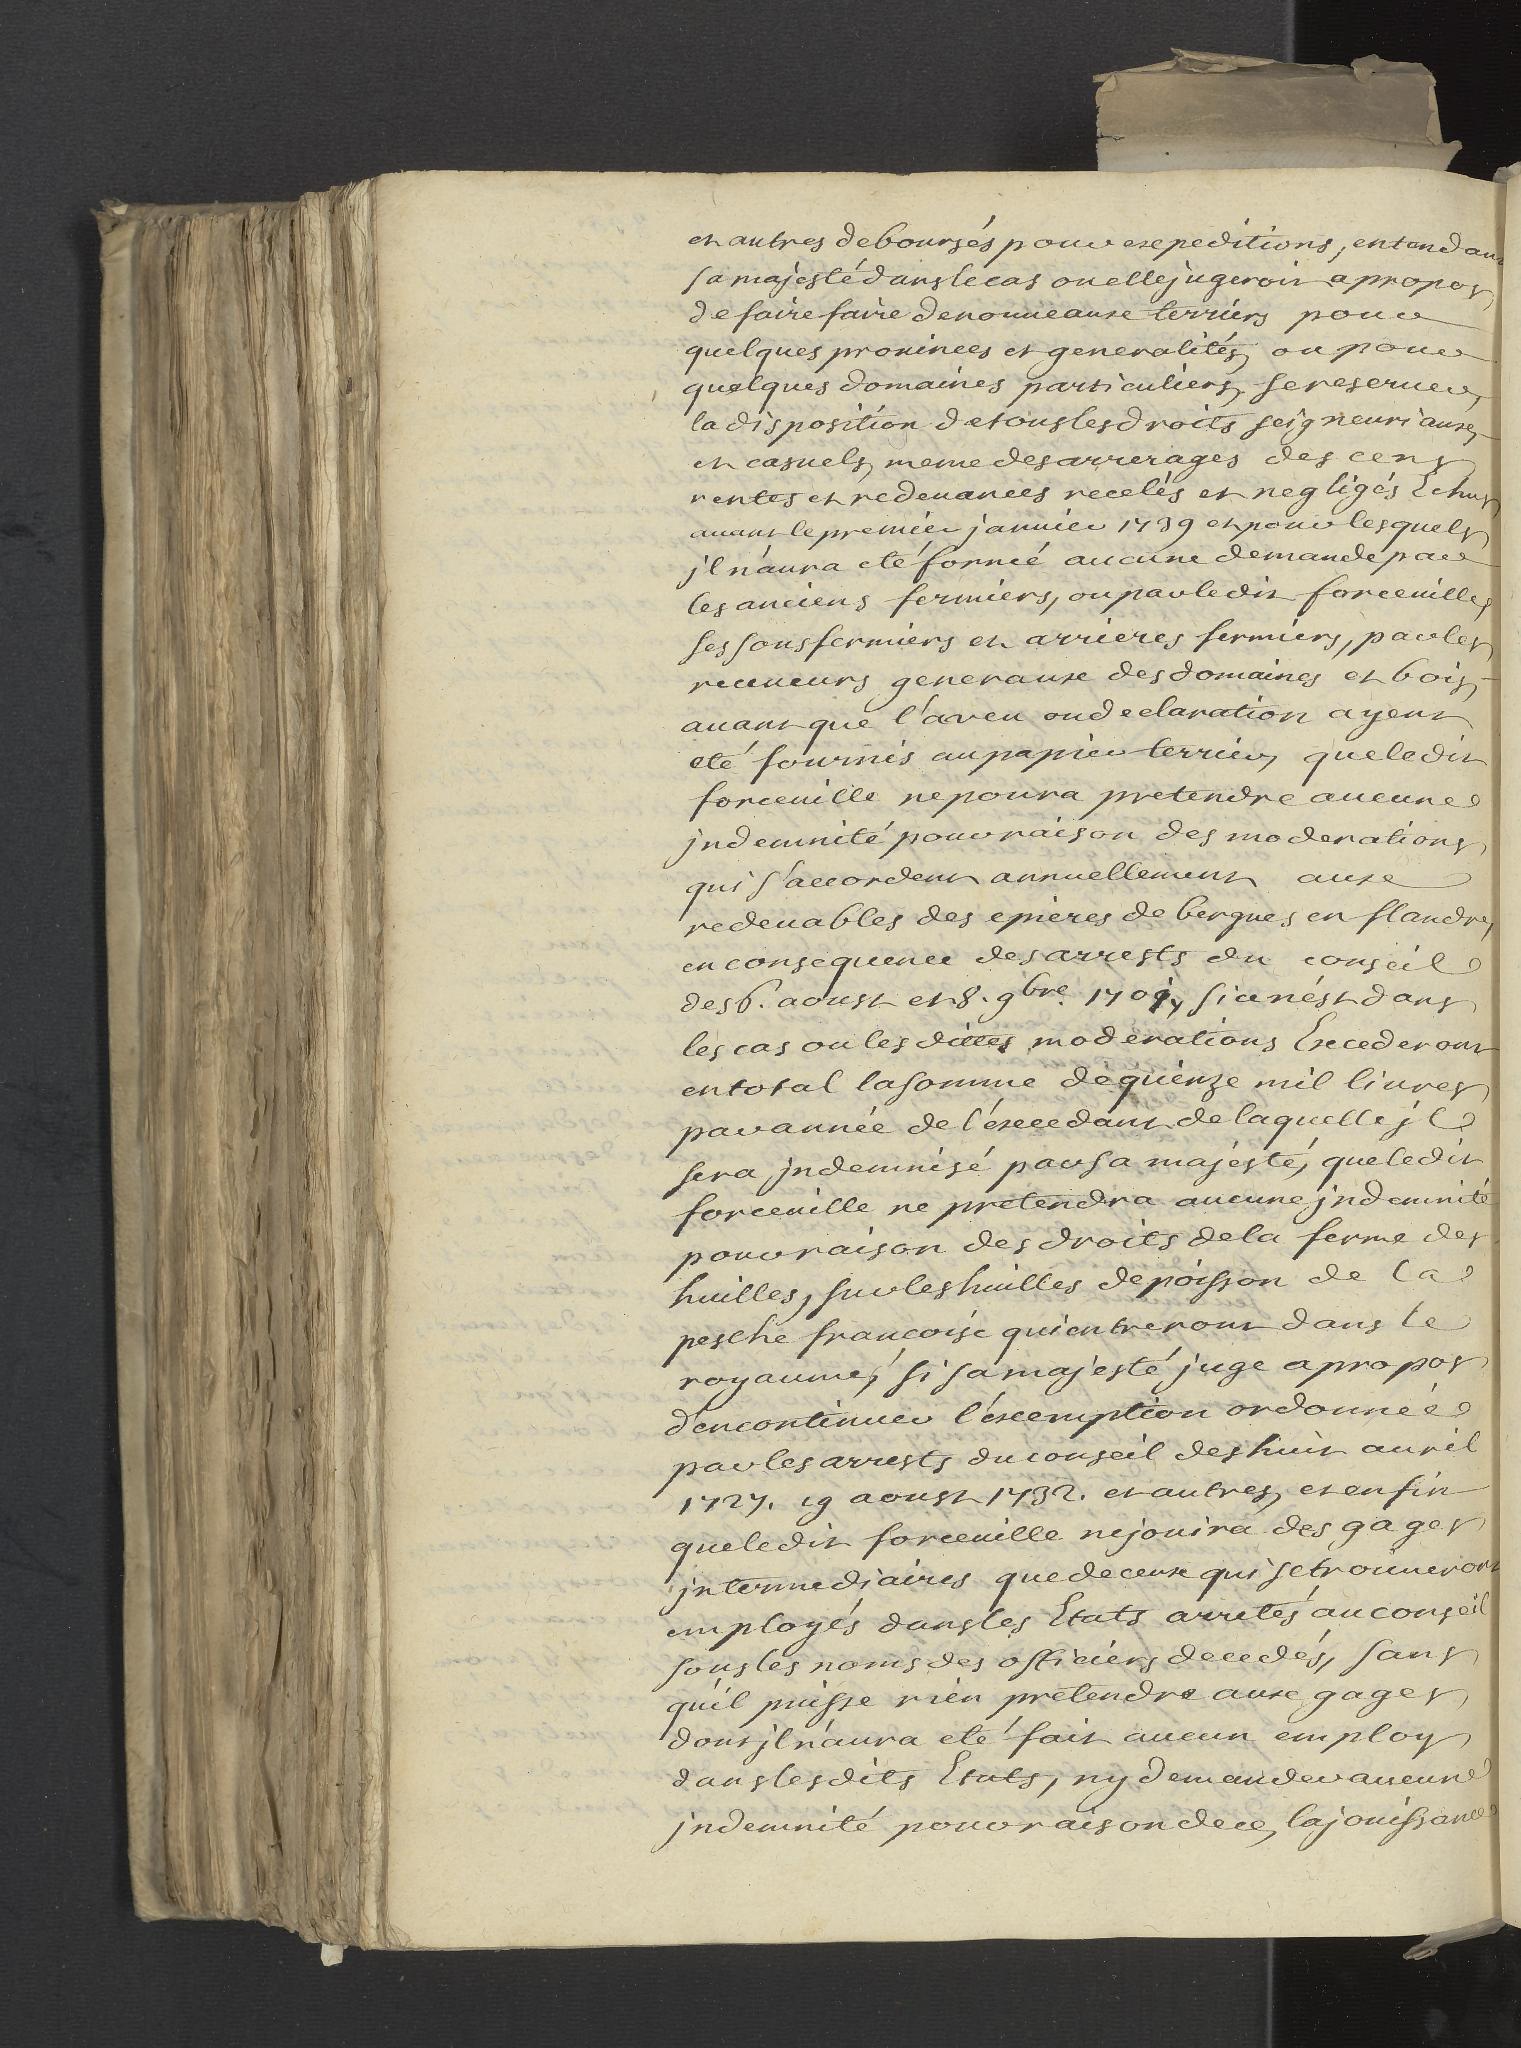 et autres deboursés pour expeditions, entendant
sa majesté dans le cas ou elle jugeroit a propos
de faire faire de nouveaux terriers pour
quelques provinces et generalités, ou pour
quelques domaines particuliers, se reserver
la disposition de tous les droits seigneuriaux
et casuels, meme des arrerages des cens
rentes et redevances recelés et negligés Echus
avant le premier janvier 1739 et pour lesquels
jl n'aura eté formé aucune demande par
les anciens fermiers, ou par ledit forceville,
ses sousfermiers et arrieres fermiers, par les
receveurs generaux des domaines et bois,
avant que l'aveu ou declaration ayent
eté fournis au papier terrier, que ledit
forceville ne poura pretendre aucune
jndemnité pour raison des moderations
qui s'accordent annuellement aux
redevables des epieres de bergues en flandre,
en consequence des arrests du conseil
des 6. aoust et 8. 9bre. si ce n'est dans
les cas ou les dittes moderations Excederont
en total la somme de quinze mil livres
par année de l'éxcedant de laquelle jl
sera jndemnisé par sa majesté, que ledit
forceville ne pretendra aucune jndemnité
pour raison des droits de la ferme des
huilles, sur les huilles de poisson de la
pesche francoise qui entreront dans le
royaume, si sa majesté juge a propos
d'en continuer l'éxemption ordonnée
par les arrests du conseil des huit avril
1727. 19 aoust 1732. et autres, et enfin
que ledit forceville ne jouira des gages
jntermediaires que de ceux qui se trouveront
employés dans les Etats arretés au conseil
sous les noms des officiers decedés, sans
qu'il puisse rien pretendre aux gages
dont jl n'aura eté fait aucun employ
dans lesdits Etats, ny demander aucune
jndemnité pour raison de ce, la jouissance